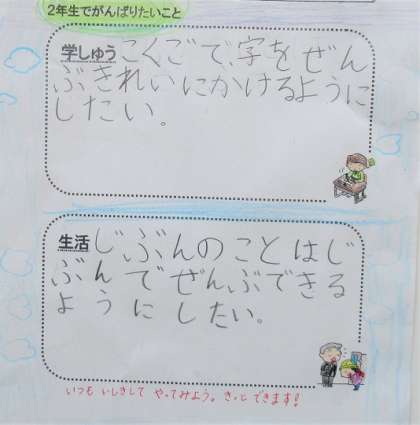 2年生でがんばりたいこと
学しゅう
こくごで、字をぜん
ぶきれいにかけるように
したい。
生活
じぶんのことはじ
ぶんでぜんぶできる
ようにしたい。
いつも いしきして やってみよう。きっと できます!